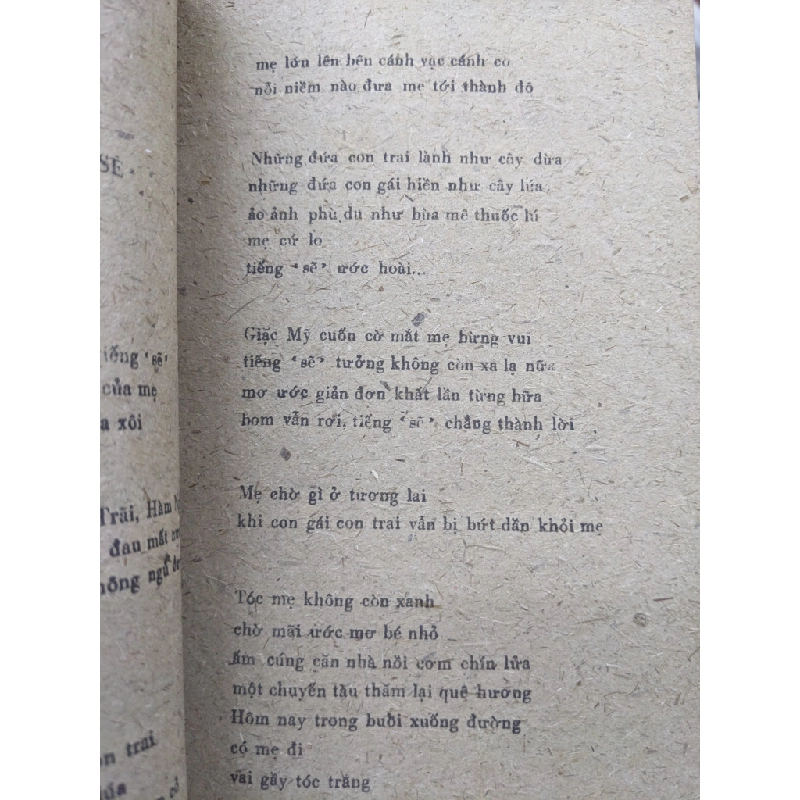 SẼ
iếng ‘sẽ’
của mẹ
a xôi
Trãi, Hàm
đau mắt
hông ngủ
on trai
úa
mẹ lớn lên bên cánh vạc cánh cò
nỗi niềm nào đưa mẹ tới thành đô
Những đứa con trai lành như cây dừa
những đứa con gái hiền như cây lúa
ảo ảnh phù du như bùa mê thuốc lú
mẹ cứ lo
tiếng ‘sẽ’ ước hoài...
Giặc Mỹ cuốn cờ mắt mẹ bừng vui
tiếng ‘sẽ’ tưởng không còn xa lạ nữa
mơ ước giản đơn khất lần từng bữa
bom vẫn rơi, tiếng ‘sẽ’ chẳng thành lời
Mẹ chờ gì ở tương lai
khi con gái con trai vẫn bị bứt dần khỏi mẹ
Tóc mẹ không còn xanh
chờ mãi ước mơ bé nhỏ
ấm cúng căn nhà nồi cơm chín lửa
một chuyến tàu thăm lại quê hương
Hôm nay trong buổi xuống đường
có mẹ đi
vai gầy tóc trắng